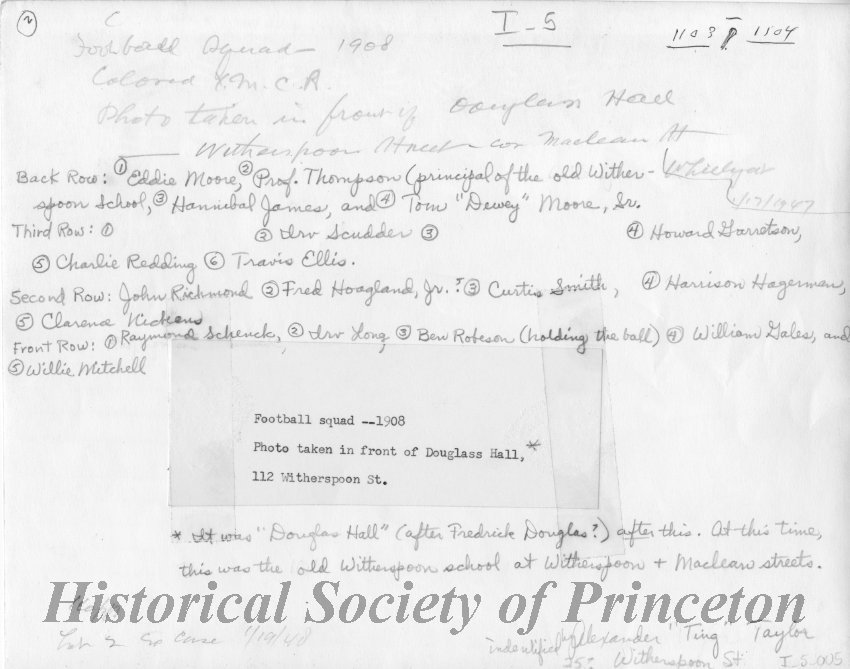 2
C
I-5
1103 1504
Football Squad - 1908
Colored Y.M.C.A.
Photo taken in front of Douglass Hall
Witherspoon Street cor Maclean St
Back Row: ① Eddie Moore, ② Prof. Thompson (principal of the old Wither-
spoon School, ③ Hannibal James, and ④ Tom "Dewey" Moore, Sr.
4/17/1947
Third Row: ① ② Irv Scudder ③ ④ Howard Garretson,
⑤ Charlie Redding ⑥ Travis Ellis.
Second Row: John Richmond ② Fred Hoagland, Jr. ? ③ Curtis Smith, ④ Harrison Hagerman,
⑤ Clarence Nickens
Front Row: ① Raymond Schenck, ② Irv Long, ③ Ben Robeson (holding the ball) ④ William Gales, and
⑤ Willie Mitchell
Football squad --1908
Photo taken in front of Douglass Hall,*
112 Witherspoon St.
* It was "Douglas Hall" (after Fredrick Douglas?) after this. At this time,
this was the old Witherspoon school at Witherspoon + Maclean streets.
Historical Society of Princeton
1/19/48
indentified by Alexander "Ting" Taylor
Witherspoon St.
I 5-005